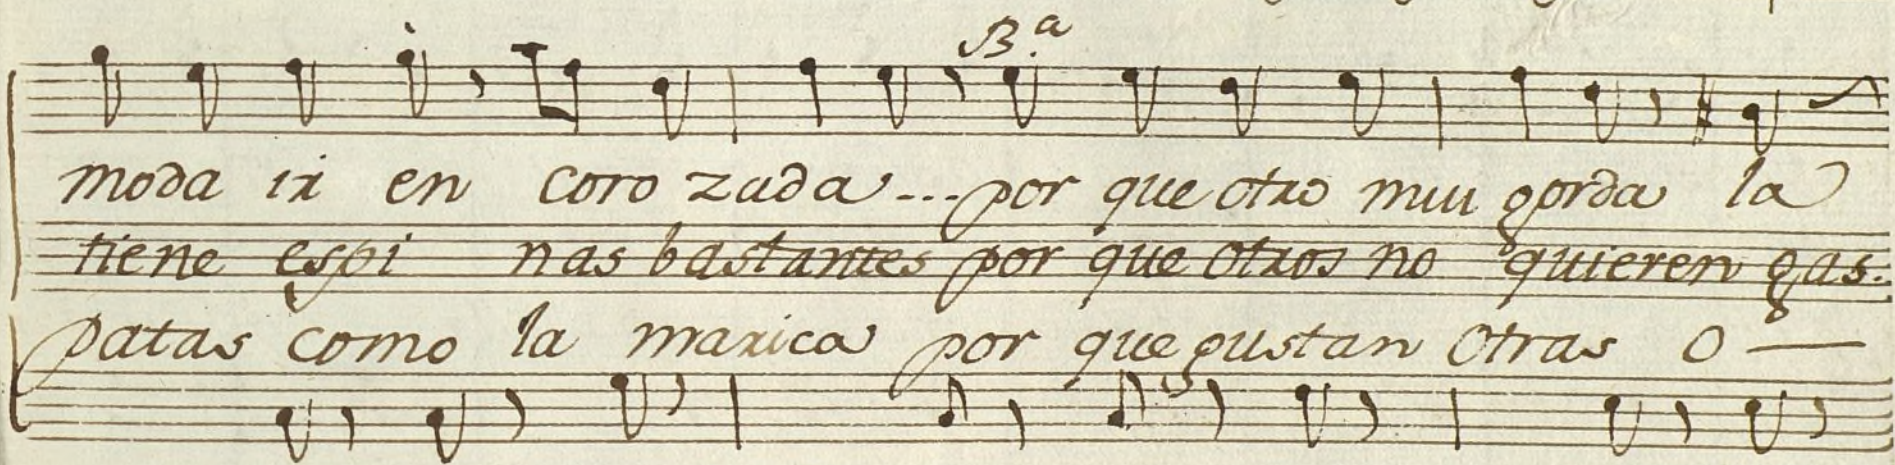 B.a
moda ir en coro zada... por que otro muu gorda la
tiene espi nas bastantes por que otros no quieren gas.
patas como la marica por que gustan otras o